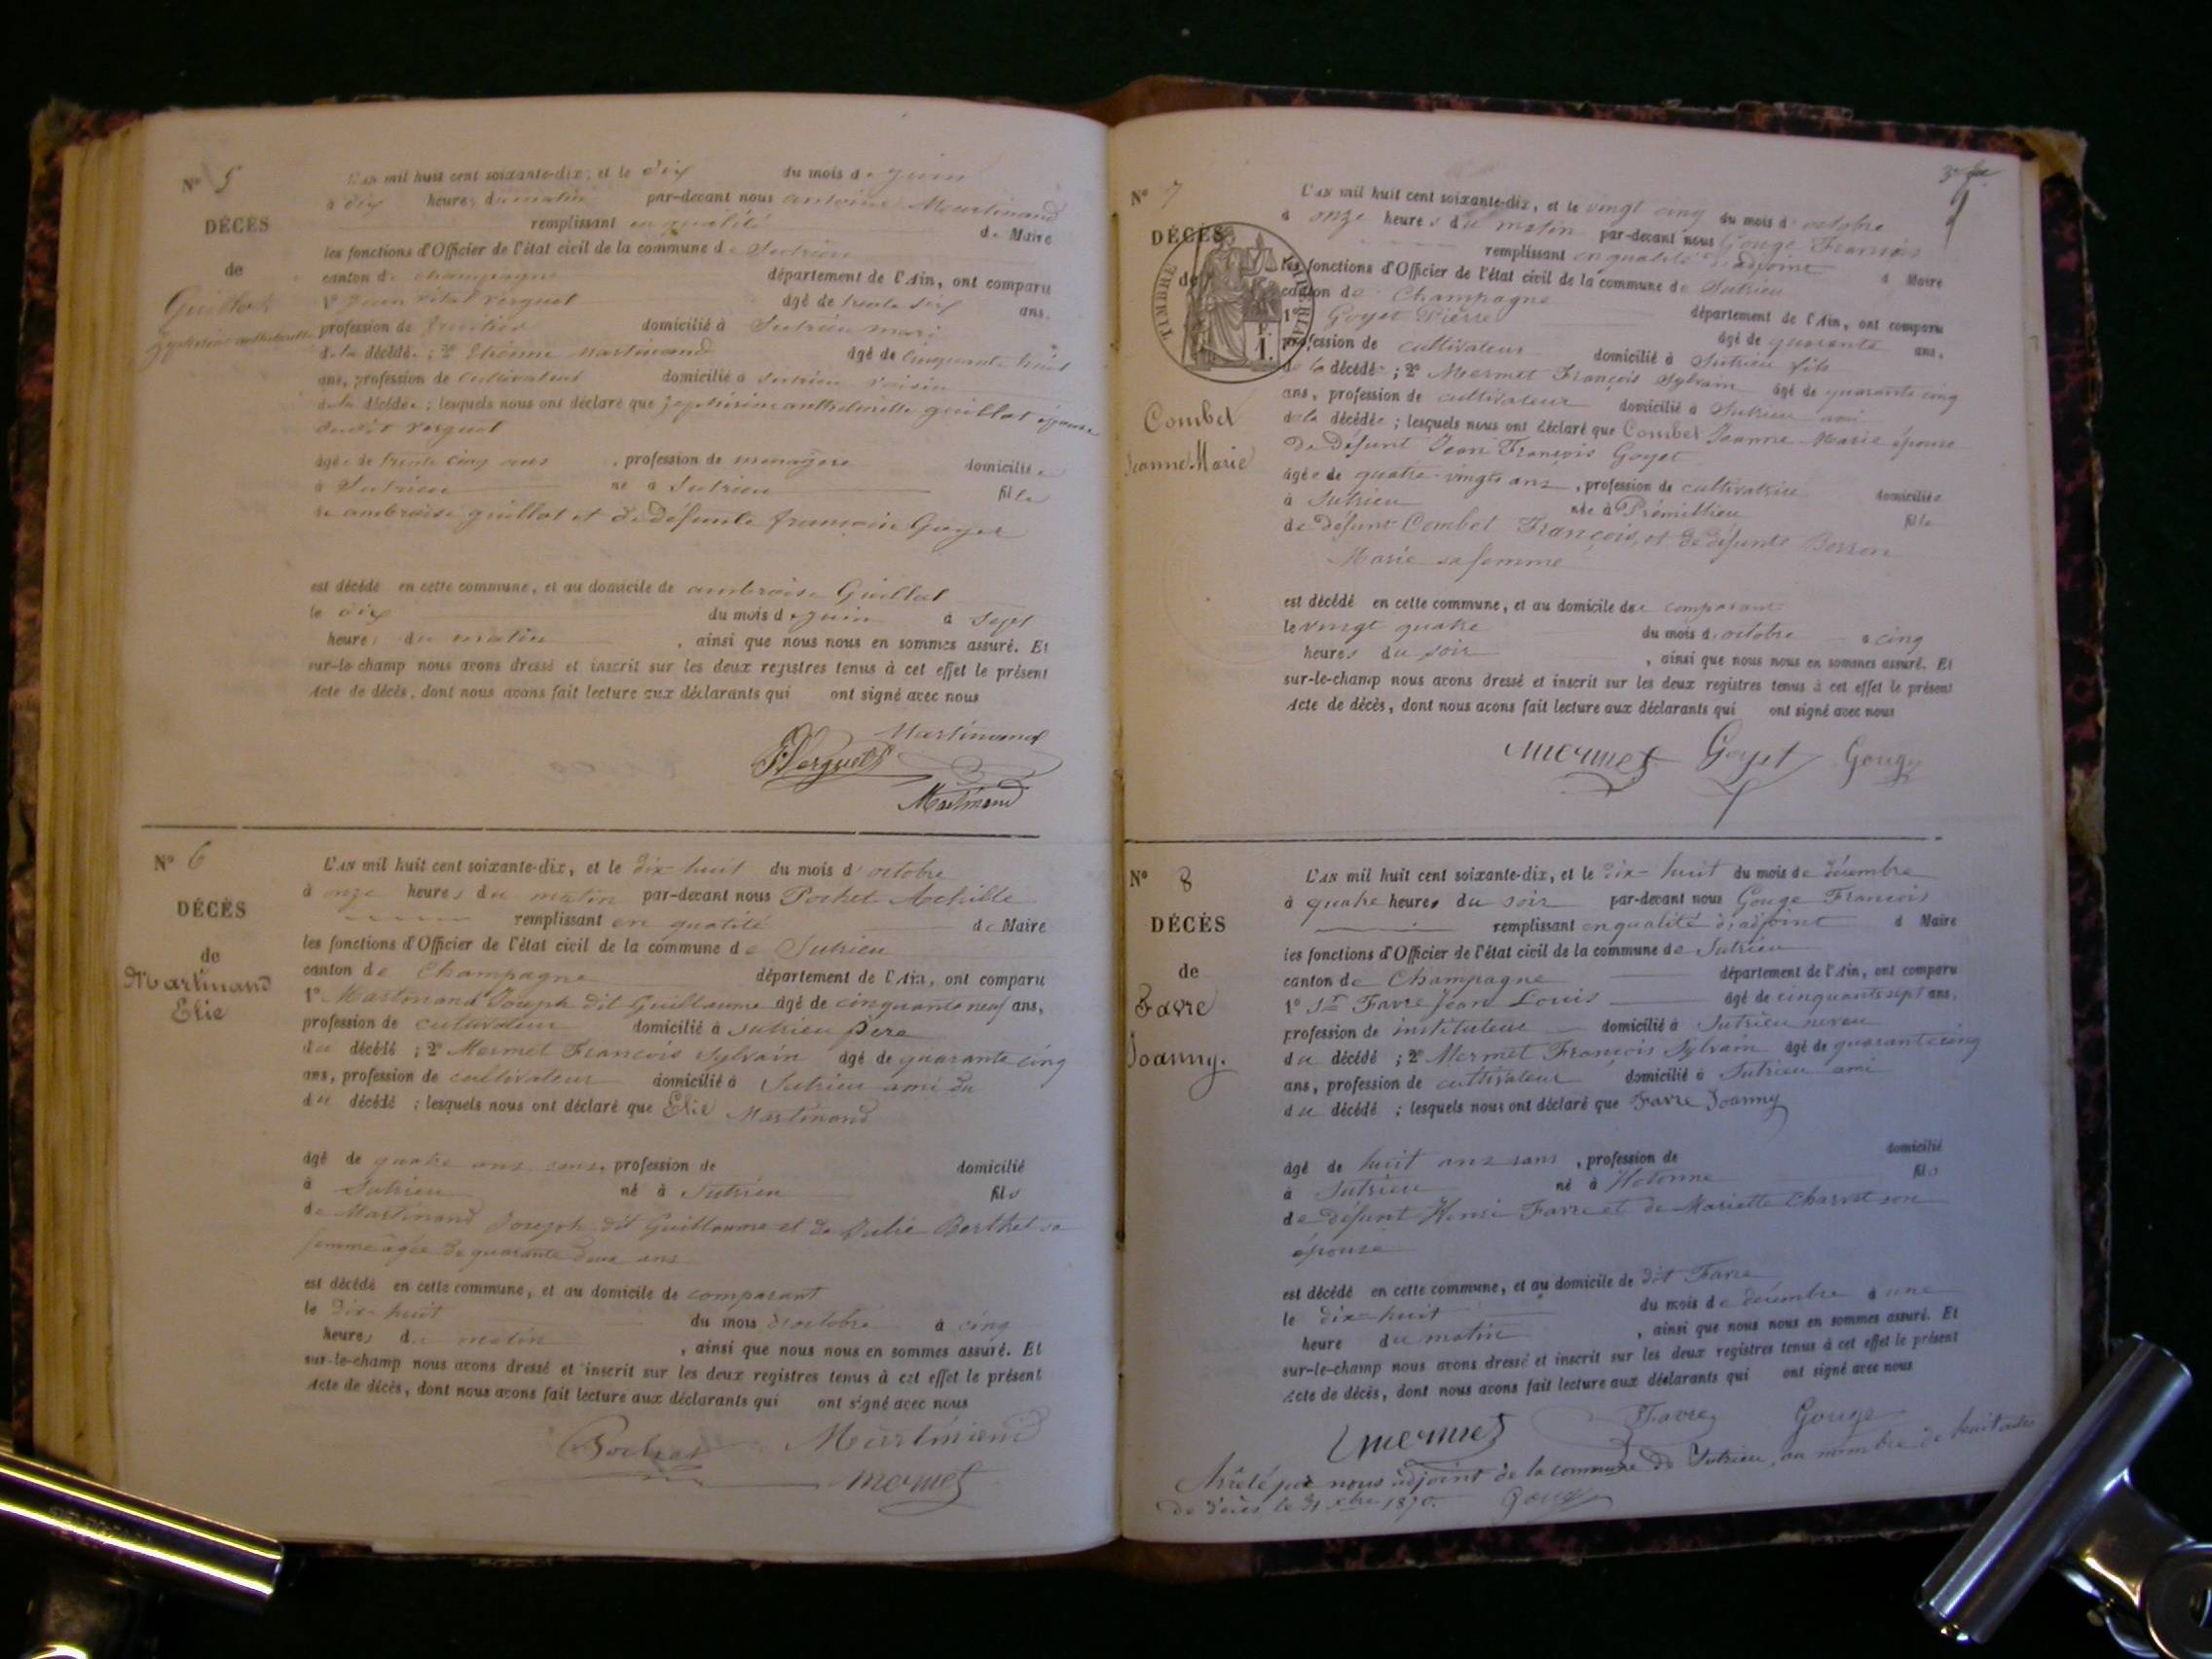 N° 5
DÉCÈS
de
Guillot
L'AN mil huit cent soixante-dix, et le dix du mois de juin
à dix heures du matin par-devant nous antoine Martinand
remplissant en qualité de Maire
les fonctions d'Officier de l'état civil de la commune de Sutrieu
canton de champagne département de l'Ain, ont comparu
1° Jean vital verguet âgé de trente six ans,
profession de domicilié à Sutrieu mari
de la décédée ; 2° Etienne Martinand âgé de cinquante huit
ans, profession de cultivateur domicilié à Sutrieu voisin
de la décédée ; lesquels nous ont déclaré que guillot épouse
dudit verguet
âgée de trente cinq ans , profession de menagère domiciliée
à Sutrieu né à Sutrieu fille
de ambroise guillot et de défunte françoise Goyet
est décédé en cette commune, et au domicile de ambroise Guillot
le dix du mois de juin à sept
heures du matin , ainsi que nous nous en sommes assuré. Et
sur-le-champ nous avons dressé et inscrit sur les deux registres tenus à cet effet le présent
Acte de décès, dont nous avons fait lecture aux déclarants qui ont signé avec nous
Martinand
Verguet
Martinand
N° 6
DÉCÈS
de
Martinand
Elie
L'AN mil huit cent soixante-dix, et le dix-huit du mois d'octobre
à onze heures du matin par-devant nous Pochet Achille
remplissant en qualité de Maire
les fonctions d'Officier de l'état civil de la commune de Sutrieu
canton de Champagne département de l'Ain, ont comparu
1° Martinand Joseph dit Guillaume âgé de cinquante neuf ans,
profession de cultivateur domicilié à Sutrieu père
du décédé ; 2° Mermet François Sylvain âgé de quarante cinq
ans, profession de cultivateur domicilié à Sutrieu ami du
du décédé ; lesquels nous ont déclaré que Elie Martinand
âgé de quatre ans sans profession de domicilié
à Sutrieu né à Sutrieu fils
de Martinand Joseph dit Guillaume et de Julie Berthet sa
femme âgée de quarante deux ans
est décédé en cette commune, et au domicile de comparant
le dix-huit du mois d'octobre à cinq
heures du matin , ainsi que nous nous en sommes assuré. Et
sur-le-champ nous avons dressé et inscrit sur les deux registres tenus à cet effet le présent
Acte de décès, dont nous avons fait lecture aux déclarants qui ont signé avec nous
Pochet Martinand
Mermet
N° 7
DÉCÈS
de
TIMBRE IMPÉRIAL
F.
1.
Combet
Jeanne Marie
L'AN mil huit cent soixante-dix, et le vingt cinq du mois d'octobre
à onze heures du matin par-devant nous Gouge François
remplissant en qualité d'adjoint d Maire
les fonctions d'Officier de l'état civil de la commune de Sutrieu
canton de Champagne département de l'Ain, ont comparu
1° Goyet Pierre âgé de quarante ans,
profession de cultivateur domicilié à Sutrieu fils
de la décédé ; 2° Mermet François Sylvain âgé de quarante cinq
ans, profession de cultivateur domicilié à Sutrieu ami
de la décédée ; lesquels nous ont déclaré que Combet Jeanne Marie épouse
de défunt Jean François Goyet
âgée de quatre-vingts ans , profession de cultivatrice domiciliée
à Sutrieu née à Prémillieu fille
de défunt Combet François, et de défunte Borron
Marie sa femme
est décédé en cette commune, et au domicile de comparant
le vingt quatre du mois d'octobre à cinq
heures du soir , ainsi que nous nous en sommes assuré. Et
sur-le-champ nous avons dressé et inscrit sur les deux registres tenus à cet effet le présent
Acte de décès, dont nous avons fait lecture aux déclarants qui ont signé avec nous
Mermet Goyet Gouge
N° 8
DÉCÈS
de
Favre
Joanny.
L'AN mil huit cent soixante-dix, et le dix-huit du mois de décembre
à quatre heures du soir par-devant nous Gouge François
remplissant en qualité d'adjoint d Maire
les fonctions d'Officier de l'état civil de la commune de Sutrieu
canton de Champagne département de l'Ain, ont comparu
1° Sr Favre Jean Louis âgé de cinquante sept ans,
profession de instituteur domicilié à Sutrieu neveu
du décédé ; 2° Mermet François Sylvain âgé de quarante cinq
ans, profession de cultivateur domicilié à Sutrieu ami
du décédé ; lesquels nous ont déclaré que Favre Joanny
âgé de huit ans sans , profession de domicilié
à Sutrieu né à Hotonne fils
de défunt Henri Favre et de Mariette Charvet son
épouse
est décédé en cette commune, et au domicile de dit Favre
le dix-huit du mois de décembre à une
heure du matin , ainsi que nous nous en sommes assuré. Et
sur-le-champ nous avons dressé et inscrit sur les deux registres tenus à cet effet le présent
Acte de décès, dont nous avons fait lecture aux déclarants qui ont signé avec nous
Mermet Favre Gouge
Arrêté par nous adjoint de la commune de Sutrieu, au nombre de huit actes
de décès le 31 xbre 1870. Gouge